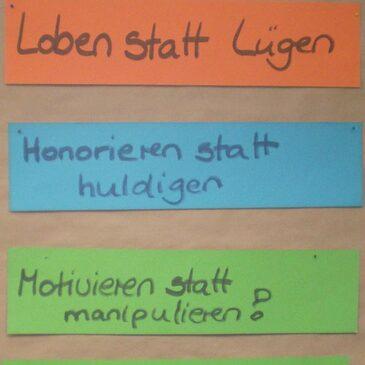 Loben statt Lügen
Honorieren statt
huldigen
Motivieren statt
manipulieren!